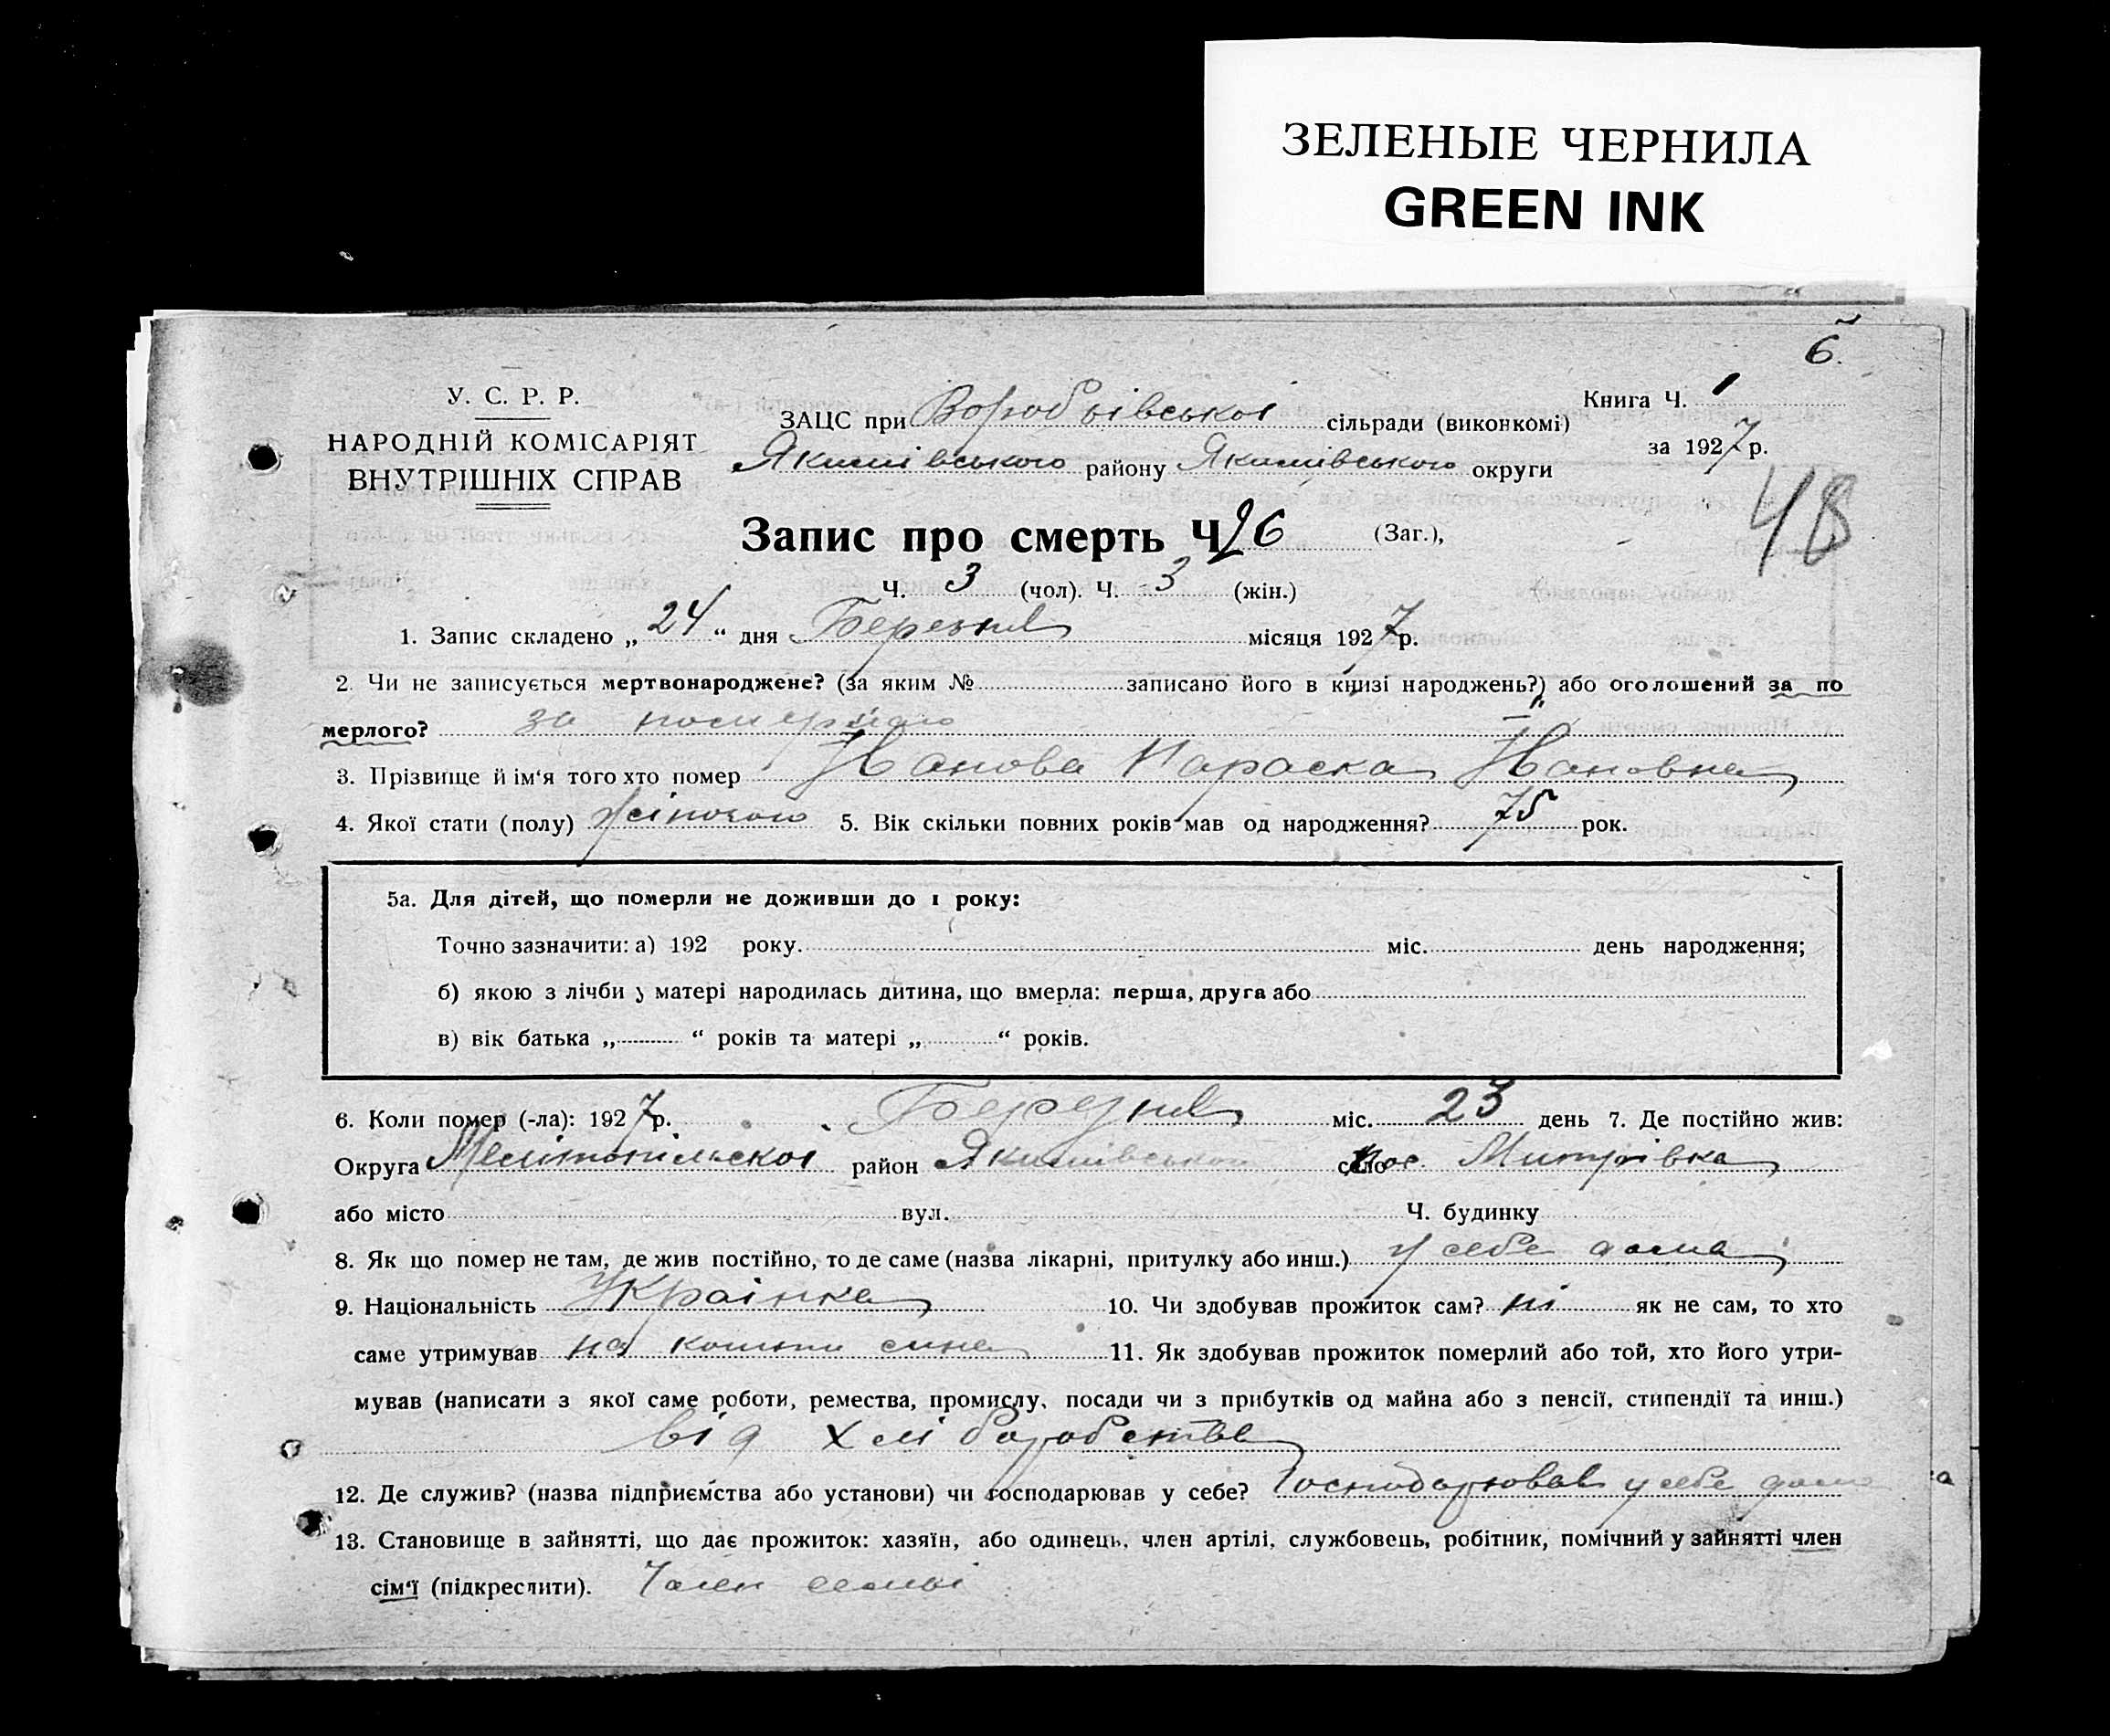 ЗЕЛЕНЫЕ ЧЕРНИЛА
GREEN INK
6.
У. С. Р. Р.
НАРОДНІЙ КОМІСАРІЯТ
ВНУТРІШНІХ СПРАВ
ЗАЦС при Воробьівської сільради (виконкомі)
Якимівського району Якимівського округи
Книга Ч. 1
за 1927 р.
48
Запис про смерть Ч. 6 (Заг.),
Ч. 3 (чол). Ч. 3 (жін.)
1. Запис складено „ 24 “ дня Березня місяця 1927 р.
2. Чи не записується мертвонароджене? (за яким № записано його в книзі народжень?) або оголошений за по
мерлого? за
3. Прізвище й ім‘я того хто помер Іванова Параска Івановна
4. Якої стати (полу) жіночою 5. Вік скільки повних років мав од народження? 75 рок.
5а. Для дітей, що померли не доживши до 1 року:
Точно зазначити: а) 192 року. міс. день народження;
б) якою з лічби у матері народилась дитина, що вмерла: перша, друга або
в) вік батька „ “ років та матері „ “ років.
6. Коли помер (-ла): 1927 р. Березня міс. 23 день 7. Де постійно жив:
Округа Мелітопільскої район Якимівського село пос. Митрівка
або місто вул. Ч. будинку
8. Як що помер не там, де жив постійно, то де саме (назва лікарні, притулку або инш.) у себе дома
9. Національність Українка 10. Чи здобував прожиток сам? ні як не сам, то хто
саме утримував на кошти сина 11. Як здобував прожиток померлий або той, хто його утри-
мував (написати з якої саме роботи, ремества, промислу, посади чи з прибутків од майна або з пенсії, стипендії та инш.)
від хліборобства
12. Де служив? (назва підприємства або установи) чи господарював у себе? Господарював у себе дома
13. Становище в зайнятті, що дає прожиток: хазяїн, або одинець, член артілі, службовець, робітник, помічний у зайнятті член
сім‘ї (підкреслити). Член семьі